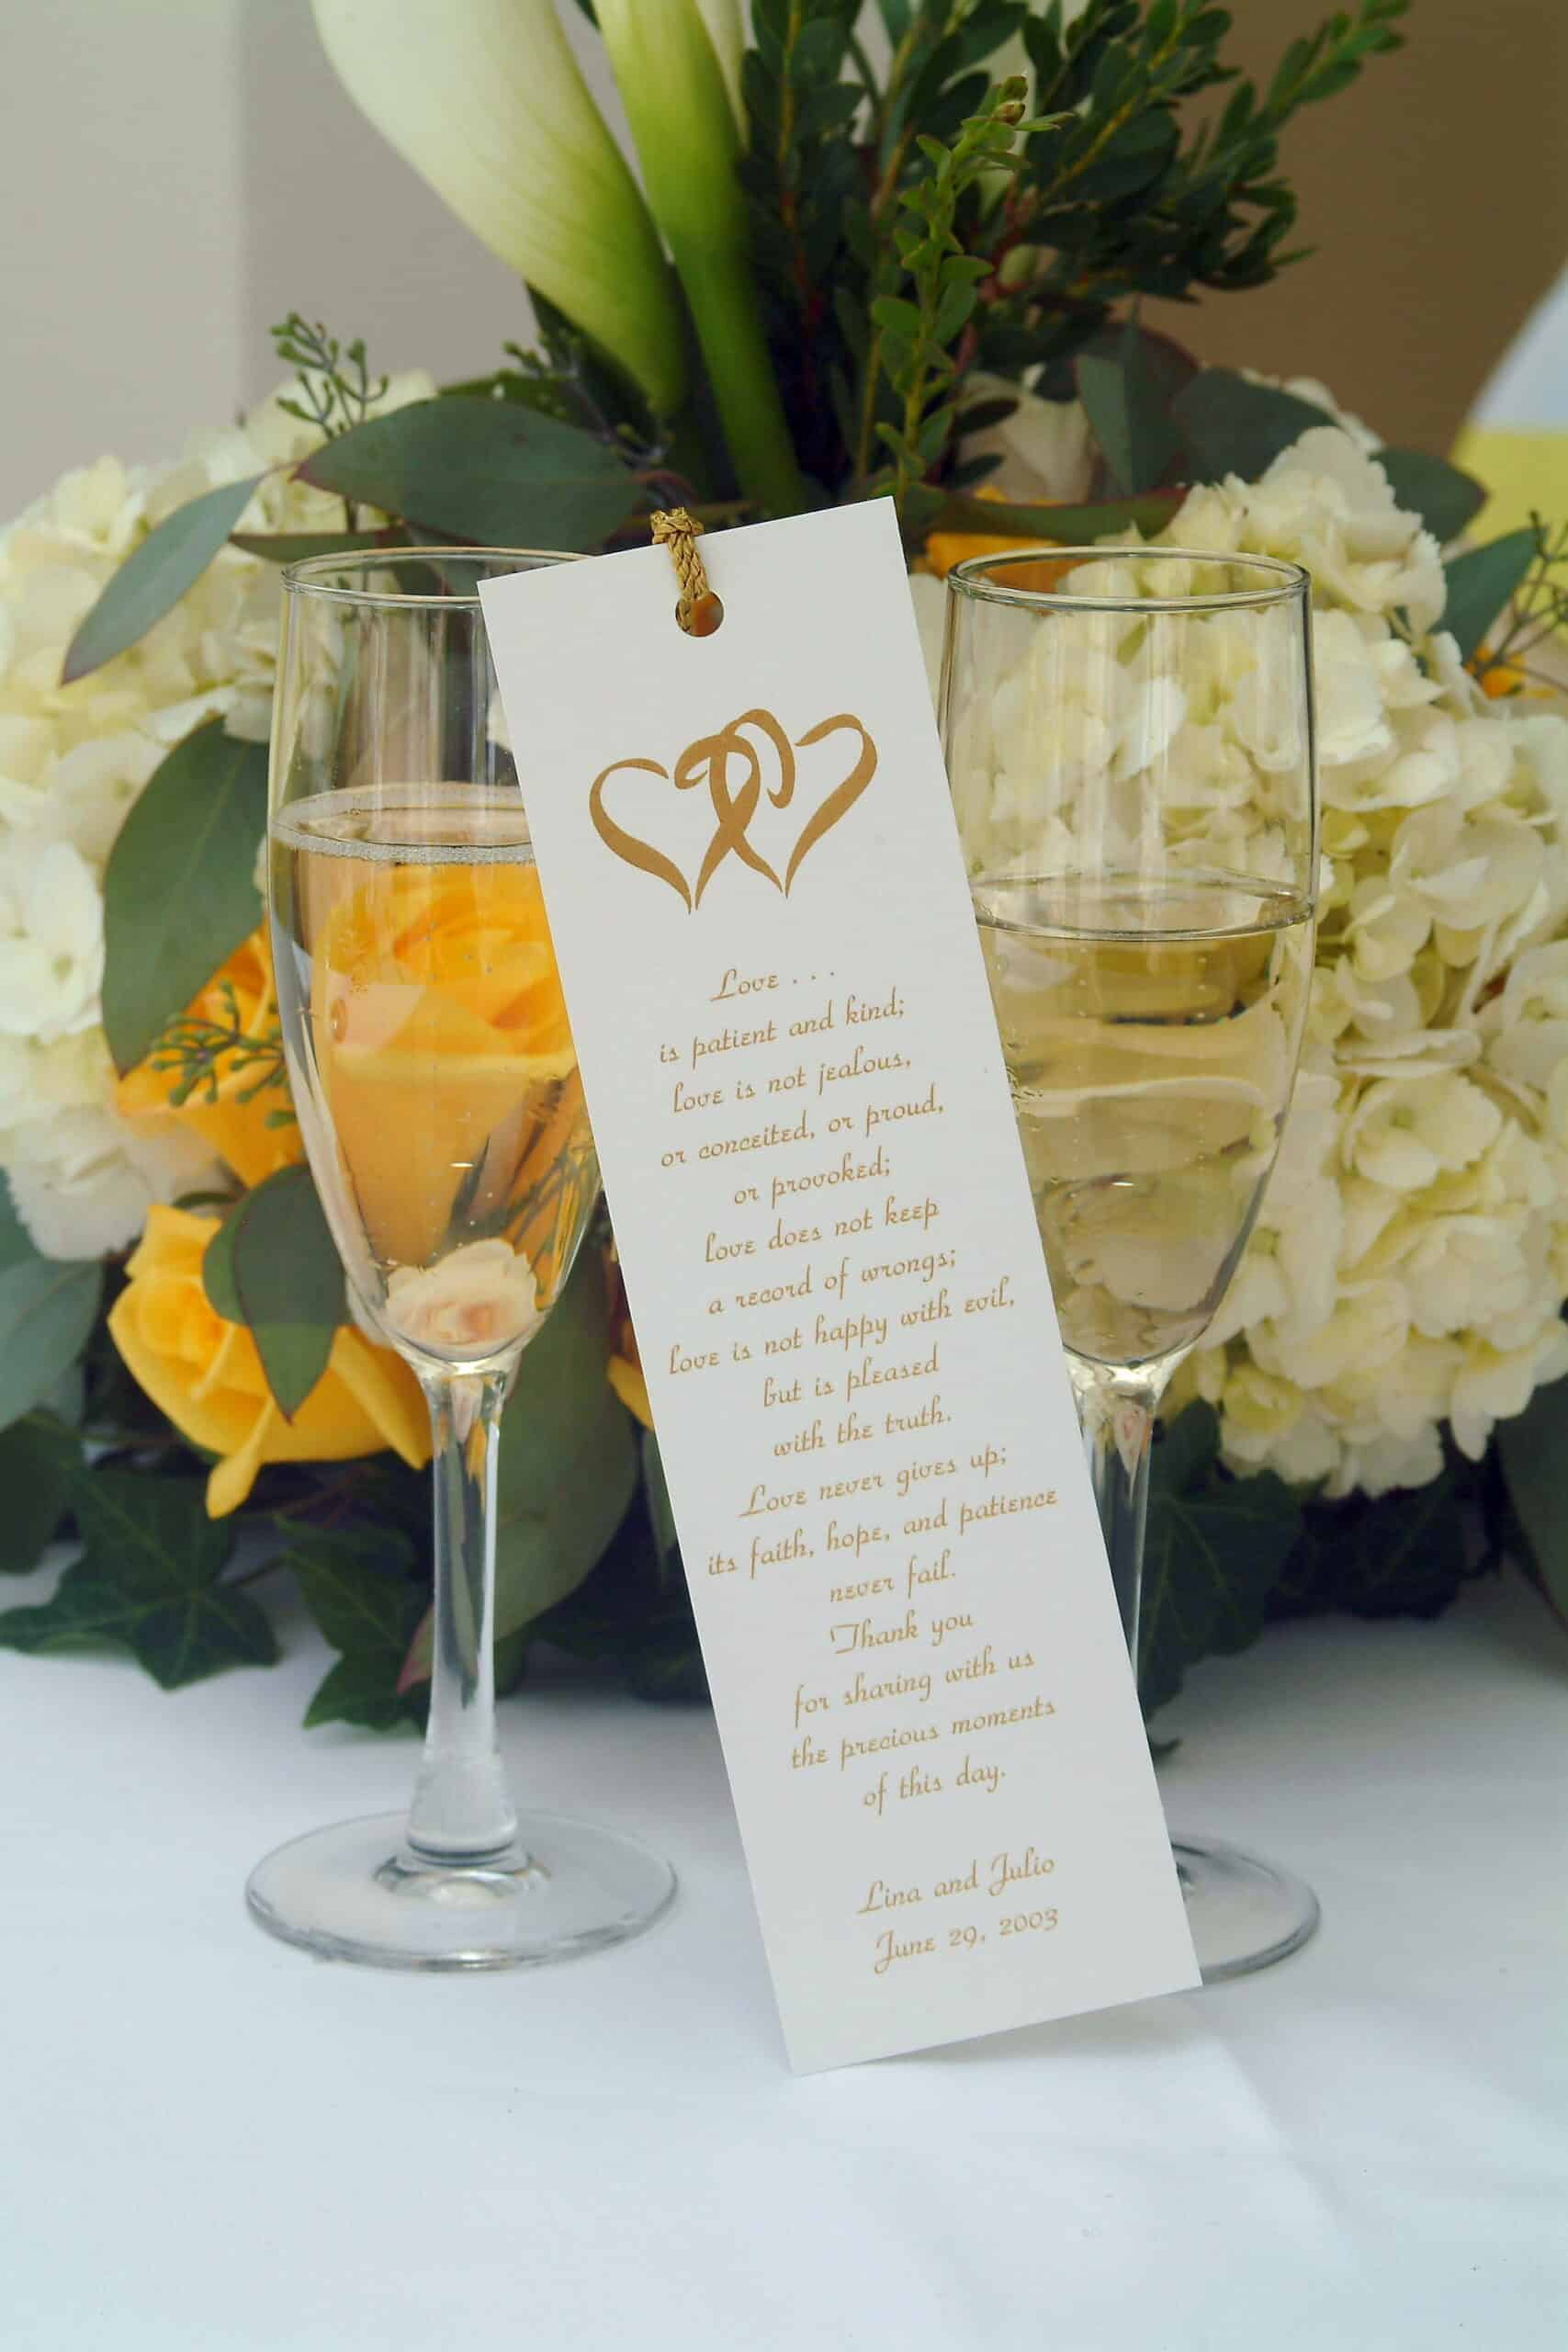 Love . . .
is patient and kind;
love is not jealous,
or conceited, or proud,
or provoked;
love does not keep
a record of wrongs;
love is not happy with evil,
but is pleased
with the truth.
Love never gives up;
its faith, hope, and patience
never fail.
Thank you
for sharing with us
the precious moments
of this day.
Lina and Julio
June 29, 2003